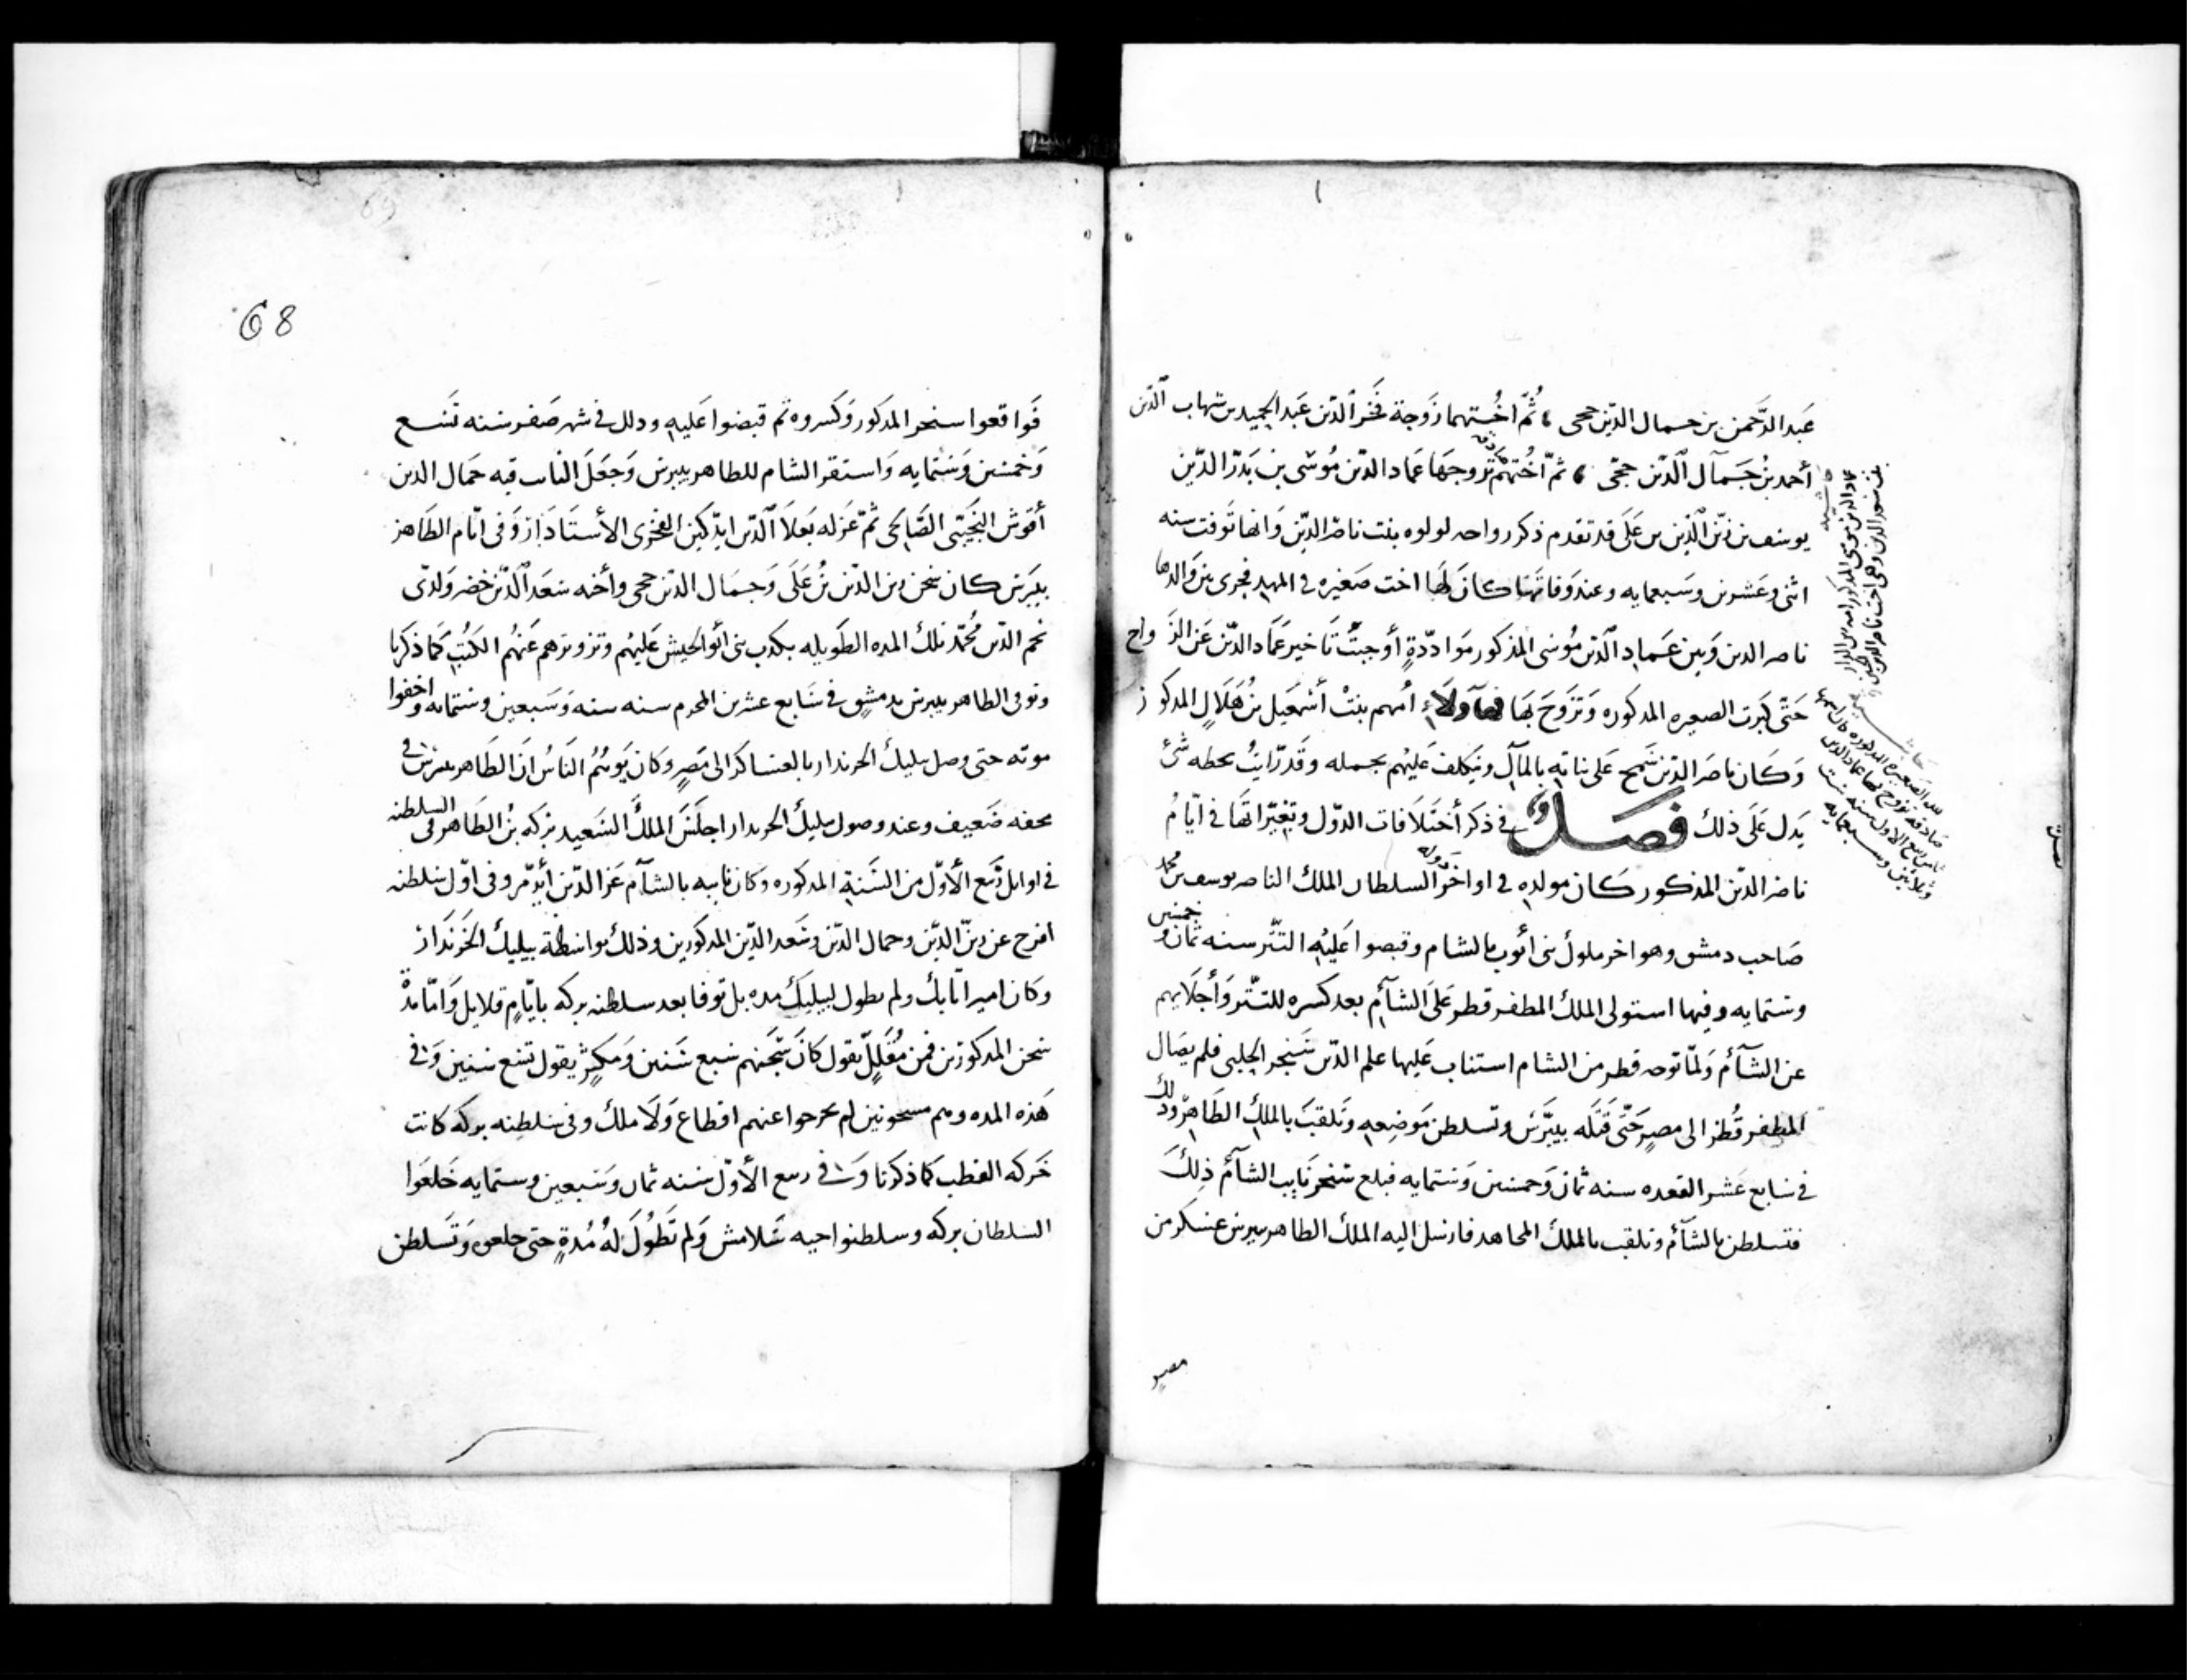 عَبد الرَّحمن بن جمال الدّين حجى ، ثُمّ اختهما زَوجة فَخر الدّين عَبد الحميد بن شهاب الدّين
أحمد بنُ جَمال الدّين حجّى ، ثمّ اُختهُم تزوجهَا عمَاد الدّين مُوسَى بن بَدر الدّين
يوسف بن زين الدّين بن عَلَى قد تقدم ذكر رواحه لولوه بنت ناصر الدّين وَانها تَوفت سنه
اثنى وعَشرين وسَبعمايه وعند وَفاتهَا كانَ لَها اخت صَغيره فى المهد فجرى بين والدها
ناصر الدين وَبين عمَاد الدّين مُوسى المذكور مَوَادّةٍ أوجبَتْ تَاخير عمَاد الدّين عَن الزَواج
حَتّى كبرت الصغيره المذكوره وَتزَوَجَ بهَا فهَآولآء أمهم بنتْ أسْمَعيل بنُ هَلَال المذكور
وَكَان ناصَر الدّين سَمح عَلى بناته بالمآل ويَكلف عَليهُم بجمله وقَد رّايتُ بخطه شىء
يَدل عَلَى ذلك فَصَــل فى ذكر أختلَافات الدوَل وتغيّراتهَا فى ايّام
ناصر الدّين المذكور كَان مولده فى اواخر دَوله السلطان الملك الناصر يوسف بن محمد
صَاحب دمشق وهو اخر ملوك بنى أيوب بالشام وقبضوا عَليْه التتَر سنه ثمان وخمسين
وستمايه وفيها استولى الملك المظفر قطز عَلَى الشآم بعد كسره للتتَر وَأجلَايهم
عن الشآم وَلمّا توجه قطز من الشام استناب عَليها علم الدّين سَنجر الحلبى فلم يصَال
المظفر قُطز الى مصر حَتّى قتَله بيبَرْس وتسلطن مَوضِعه وتَلقبَ بالملكِ الظَاهر وذلك
فى سَابع عَشر القعده سنه ثمان وَخمسين وستمايه فبلغ سنجر نَايب الشآم ذلِكَ
فتسلطن بالشآم وتلقب بالملك المجاهد فارسل اليه الملك الظاهر بيبرس عسكر من
مصر
حاشيه
عماد الدّين موسى المذكور امه بنت
فَواقعوا سنجر المذكور وَكسروه ثم قبضوا عَليهِ وذلك فى شهر صَفر سنه تسَع
وَخمسين وَستمايه وَاستقر الشام للظاهر بيبرس وَجَعَلَ النَايب فيه جَمال الدين
أقوش النَجَيبى الصَّالحى ثمّ عَزله بعَلآ الدّين ايدكين الفخرى الأستَادَار وَفى ايّام الظَاهر
بيبَرس كان سَجن زين الدّين بنُ عَلَى وَجمَال الدّين حجى وأخه سَعَد الدّين خضر وَلدى
نجم الدّين مُحمّد تلك المده الطَويله بكَدب بنى أبو الجيش عَليهُم وتزويرهم عَنهُم الكُتُب كما ذكرنا
وتوفى الظاهر بيبرس بدمشق فى سَابع عشرين المحرم سنه سته وَسَبعين وستمايه واخفوا
موته حتى وصل بيليك الخزندار بالعسَاكر الى مصر وكان يَوهُم النَاس ان الظَاهر بيبرس فى
محفه ضَعيف وعند وصول بيليك الخزندار اجلسَ الملك السَعيد بَركه بنُ الظَاهر فى السلطنه
فى اوايل رَبيع الأوّل من السَنة المذكوره وكان نايبه بالشآم عَز الدّين أيدَمر وفى اوّل سَلطنه
افرج عن زين الدّين وجمال الدّين وسَعد الدّين المذكورين وذلك بواسطة بيليك الخَزندَار
وكان امير اتَابك ولم يطول لبيليك مده بل توفا بعد سلطنه بركه بايّامٍ قلايل وَامّا مدة
سَجن المذكورين فمن مُقَللٍ يقول كانَ سَجَنهم سَبع سَنين وَمكثِرٍ يقول تسَع سنين وَفى
هَذه المده وهم مسجونين لم يخرجوا عنهم اقطاع وَلَا ملك وفى سَلطنه بركه كانت
حَركه القطب كما ذكرنا وَفى ربيع الأوّل سَنه ثمان وَسَبعين وستمايه خَلعَوا
السلطان بركه وسلطنوا اخيه سَلامش وَلم تَطُولَ لهُ مُدةٍ حتى خلعوه وَتَسلطن
68